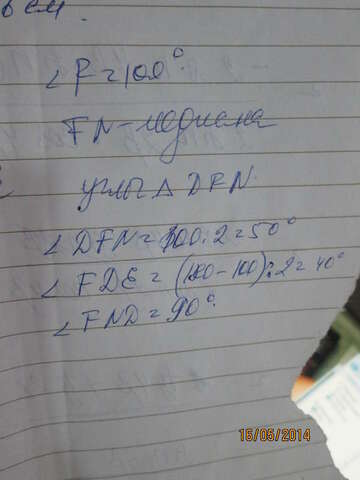 ем.
∠F=100°
FN-медиана
углы △ DFN
∠ DFN = 100:2=50°
∠ FDE = (180-100):2= 40°
∠ FND = 90°
15/05/2014